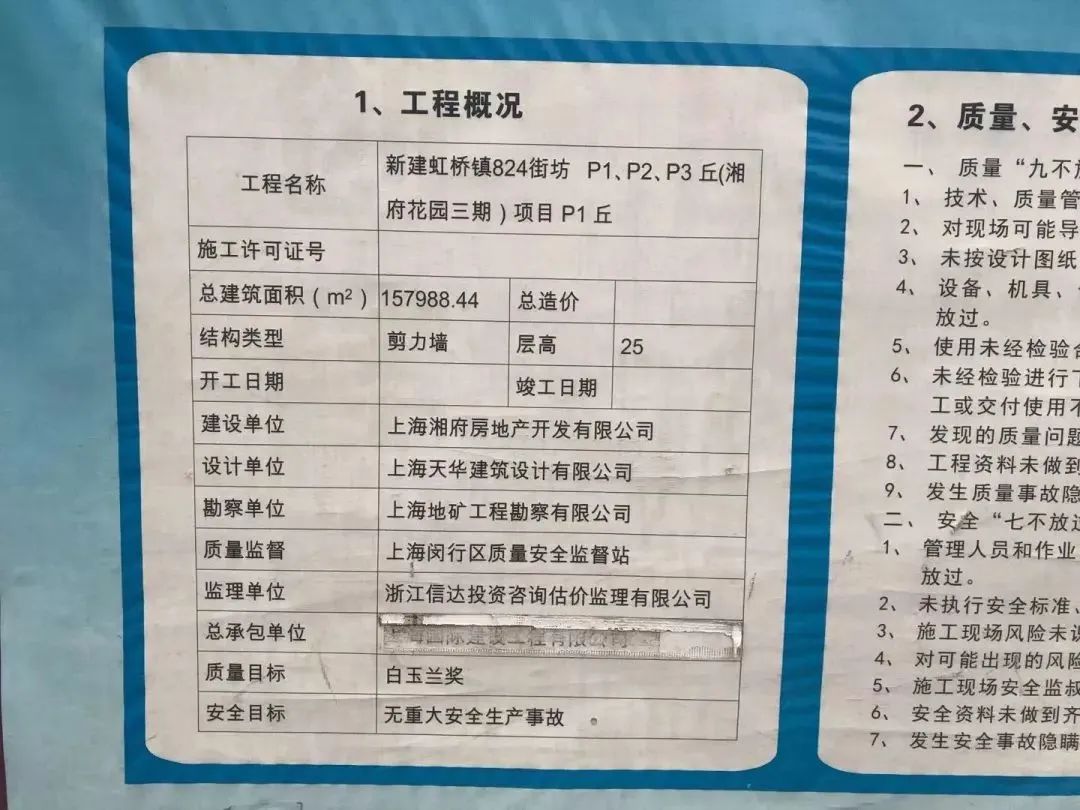 1、工程概况
工程名称
新建虹桥镇824街坊 P1、P2、P3丘(湘
府花园三期）项目P1丘
施工许可证号
总建筑面积（m²） 157988.44 总造价
结构类型 剪力墙 层高 25
开工日期 竣工日期
建设单位 上海湘府房地产开发有限公司
设计单位 上海天华建筑设计有限公司
勘察单位 上海地矿工程勘察有限公司
质量监督 上海闵行区质量安全监督站
监理单位 浙江信达投资咨询估价监理有限公司
总承包单位
质量目标 白玉兰奖
安全目标 无重大安全生产事故
2、质量、安
一、质量“九不放
1、技术、质量管
2、对现场可能导
3、未按设计图纸
4、设备、机具、
放过。
5、使用未经检验合
6、未经检验进行下
工或交付使用不
7、发现的质量问题
8、工程资料未做到
9、发生质量事故隐
二、安全“七不放过
1、管理人员和作业
放过。
2、未执行安全标准、
3、施工现场风险未识
4、对可能出现的风险
5、施工现场安全监叔
6、安全资料未做到齐
7、发生安全事故隐瞒